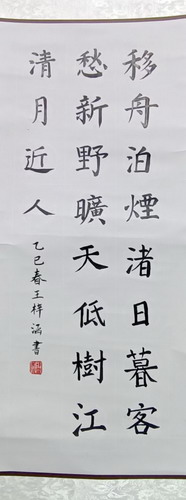 移舟泊煙渚日暮客
愁新野曠天低樹江
清月近人
乙巳春王梓涵書